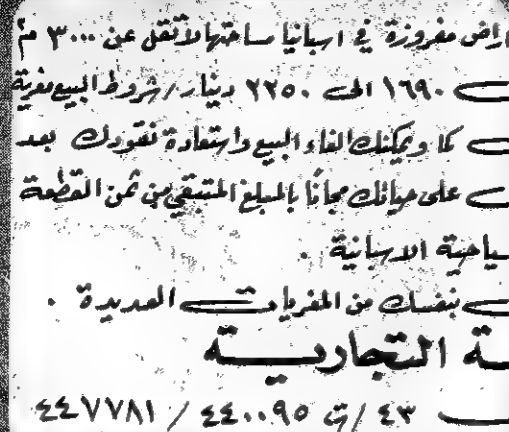 اراض مفروزة في اسبانيا مساحتها لاتقل عن ٣٠٠٠ م٢
١٦٩٠ الى ٢٢٥٠ دينار / شروط البيع مغرية
كما ويمكنك الغاء البيع واستعادة نقودك بعد
على حياتك مجانا بالمبلغ المتبقي من ثمن القطعة
سياحية الاسبانية .
بنفسك من المغريات العديدة .
ـة التجارية
٤٣ / ت ٤٤٠٠٩٥ / ٤٤٧٧٨١